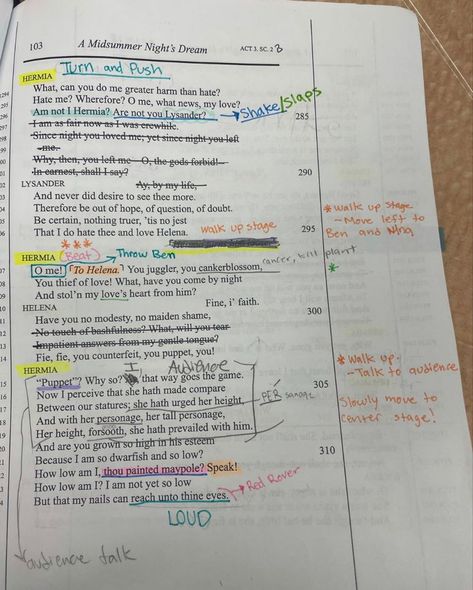 103 A Midsummer Night's Dream ACT 3. SC. 2
Turn and Push
HERMIA
What, can you do me greater harm than hate?
Hate me? Wherefore? O me, what news, my love?
Am not I Hermia? Are not you Lysander? Shake/Slaps 285
I am as fair now as I was erewhile.
Since night you loved me; yet since night you left
me.
Why, then, you left me—O, the gods forbid!—
In earnest, shall I say? 290
LYSANDER Ay, by my life,
And never did desire to see thee more.
Therefore be out of hope, of question, of doubt.
Be certain, nothing truer, 'tis no jest
That I do hate thee and love Helena. walk up stage 295
* walk up stage
- Move left to
Ben and Nina
HERMIA
(Beat) Throw Ben
O me! [To Helena.] You juggler, you cankerblossom, cancer, kill plant
You thief of love! What, have you come by night
And stol'n my love's heart from him?
HELENA Fine, i' faith.
Have you no modesty, no maiden shame, 300
No touch of bashfulness? What, will you tear
Impatient answers from my gentle tongue?
Fie, fie, you counterfeit, you puppet, you!
HERMIA Audience
"Puppet"? Why so? that way goes the game.
Now I perceive that she hath made compare 305
Between our statures; she hath urged her height,
And with her personage, her tall personage, PER
Her height, forsooth, she hath prevailed with him.
And are you grown so high in his esteem
Because I am so dwarfish and so low? 310
How low am I, thou painted maypole? Speak!
How low am I? I am not yet so low
But that my nails can reach unto thine eyes. Red Rover
LOUD
* Walk up.
- Talk to audience
Slowly move to
center stage!
audience talk